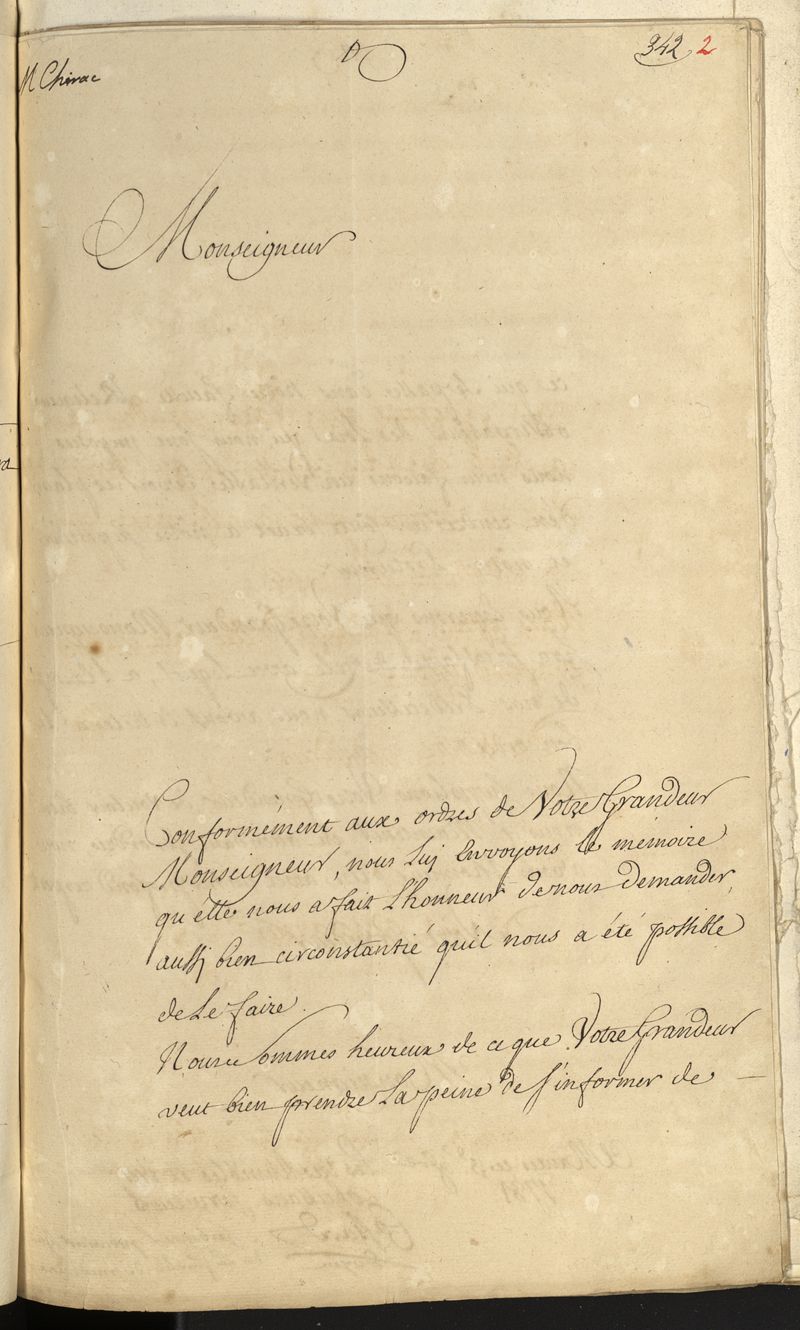 M Chirac
342 2
Monseigneur
Conformément aux ordres de Votre Grandeur
Monseigneur, nous Luy Envoyons le mémoire
qu'elle nous a fait L'honneur de nous demander,
aussy bien circonstantié qu'il nous a été possible
de Le faire.
Nous Sommes heureux de ce que Votre Grandeur
veut bien prendre La peine de s'informer de —